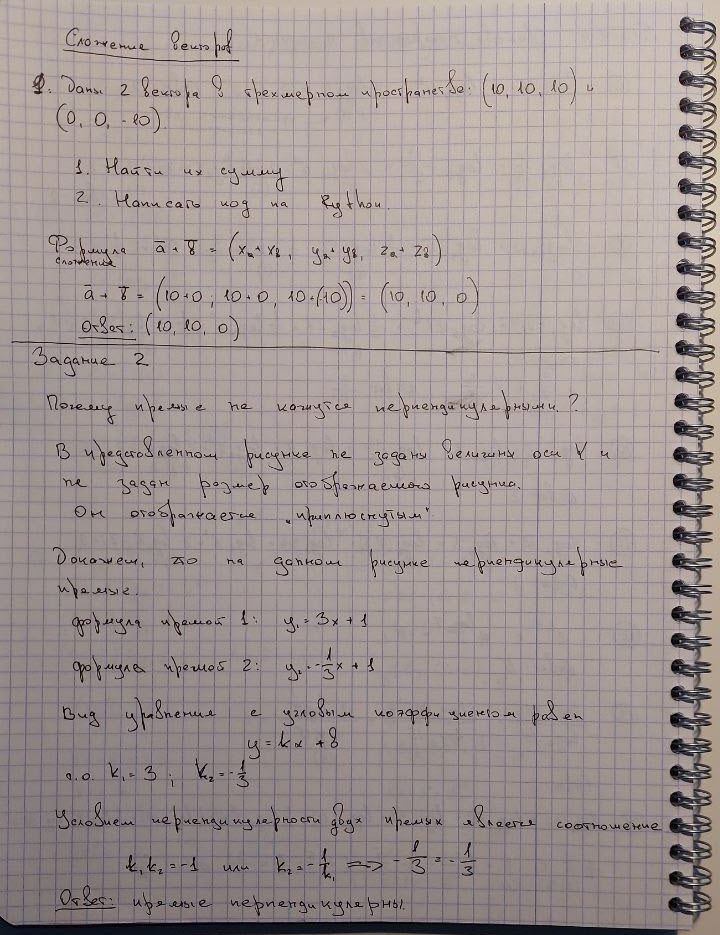 Сложение векторов
1. Даны 2 вектора в трехмерном пространстве: (10, 10, 10) и
(0, 0, -10).
1. Найти их сумму
2. Написать код на Python.
Формула сложения a̅ + b̅ = (xa + xb, ya + yb, za + zb)
a̅ + b̅ = (10+0; 10+0, 10+(-10)) = (10, 10, 0)
Ответ: (10, 10, 0)
Задание 2
Почему прямые не кажутся перпендикулярными?
В представленном рисунке не заданы величины оси Y и
не задан размер отображаемого рисунка.
Он отображается „приплюснутым"
Докажем, что на данном рисунке перпендикулярные
прямые.
формула прямой 1: y₁ = 3x + 1
формула прямой 2: y₂ = -1/3 x + 1
Вид уравнения с угловым коэффициентом равен
y = kx + b
k₁ = 3; k₂ = -1/3
Условием перпендикулярности двух прямых является соотношение
k₁k₂ = -1 или k₂ = -1/k₁ => -1/3 = -1/3
Ответ: прямые перпендикулярны.